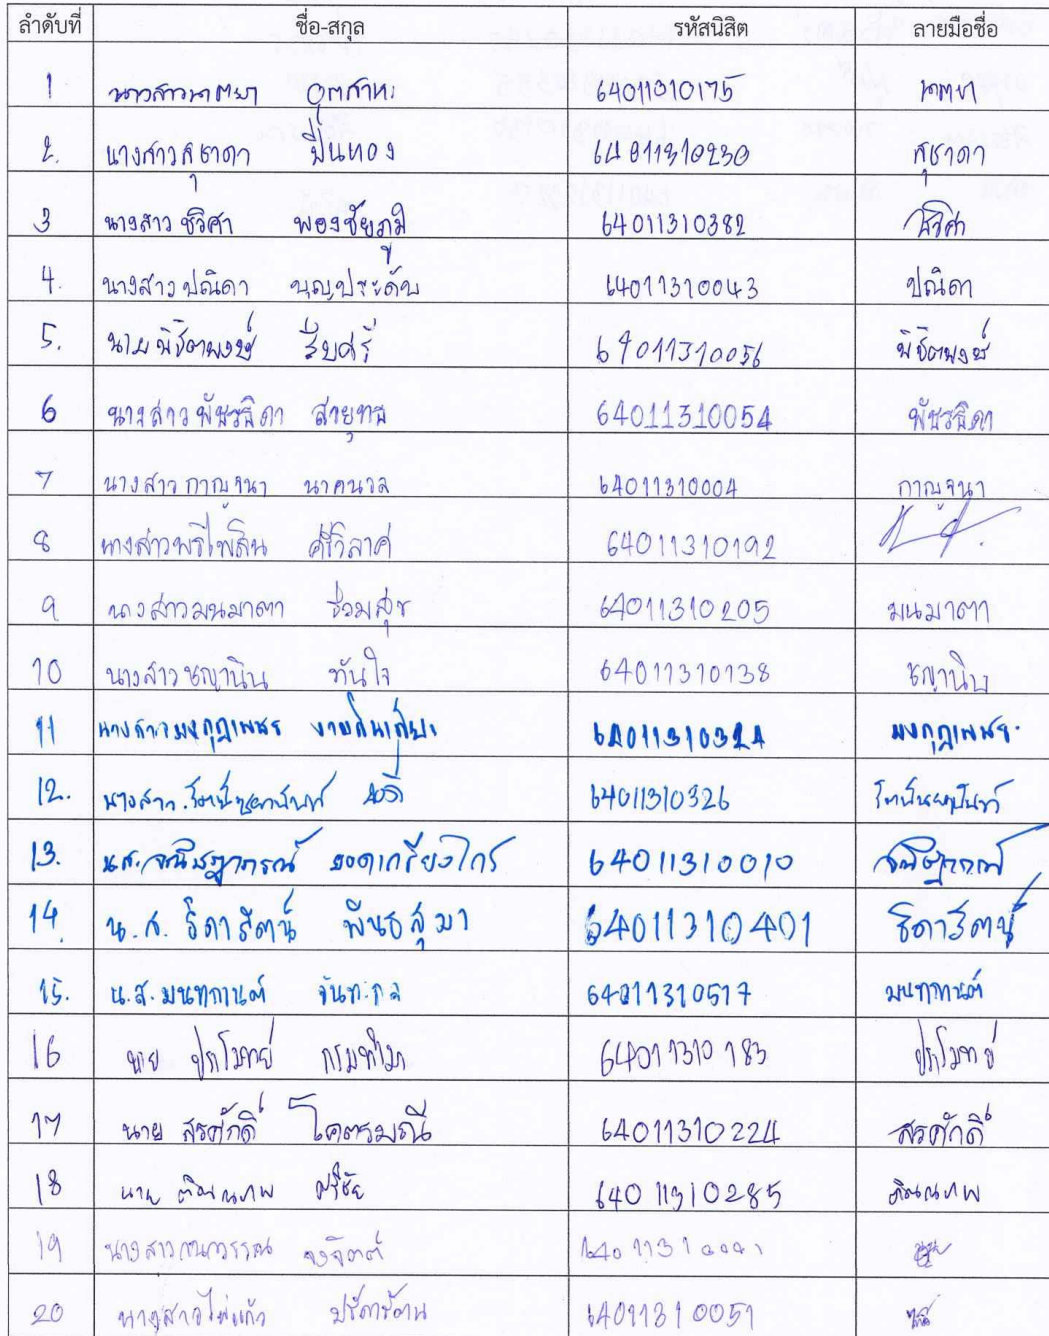 ลำดับที่ ชื่อ-สกุล รหัสนิสิต ลายมือชื่อ
1 นางสาวนาตยา อุตสาหะ 64011310175 นาตยา
2. นางสาวสุชาดา ปิ่นทอง 64011310230 สุชาดา
3 นางสาว ชวิศา พองชัยภูมิ 64011310382 ชวิศา
4. นางสาว ปณิดา บุญประดับ 64011310043 ปณิดา
5. นาย พิชิตพงษ์ สืบศรี 64011310056 พิชิตพงษ์
6 นางสาว พัชรธิดา สายุทธ 64011310054 พัชรธิดา
7 นางสาว กาญจนา นาคนวล 64011310004 กาญจนา
8 นางสาวพรไพลิน ศรีวิลาศ 64011310192
9 นางสาวมนมาตา ร่วมสุข 64011310205 มนมาตา
10 นางสาว ชญานิน ทันใจ 64011310138 ชญานิน
11 นางสาวมงกุฎเพชร 64011310324 มงกุฎเพชร
12. นางสาว 64011310326
13. น.ส. ยอดเกรียงไกร 64011310010
14. น.ส. ธิดารัตน์ พันธสุมา 64011310401 ธิดารัตน์
15. น.ส. มนทกานต์ จันทะกล 64011310517 มนทกานต์
16 นาย ปราโมทย์ กรมทำมา 64011310183 ปราโมทย์
17 นาย สรศักดิ์ โคตรมณี 64011310224 สรศักดิ์
18 นาย ศรีชัย 64011310285
19 นางสาวกนกวรรณ จงจิตต์
20 นางสาวไข่แก้ว 64011310051